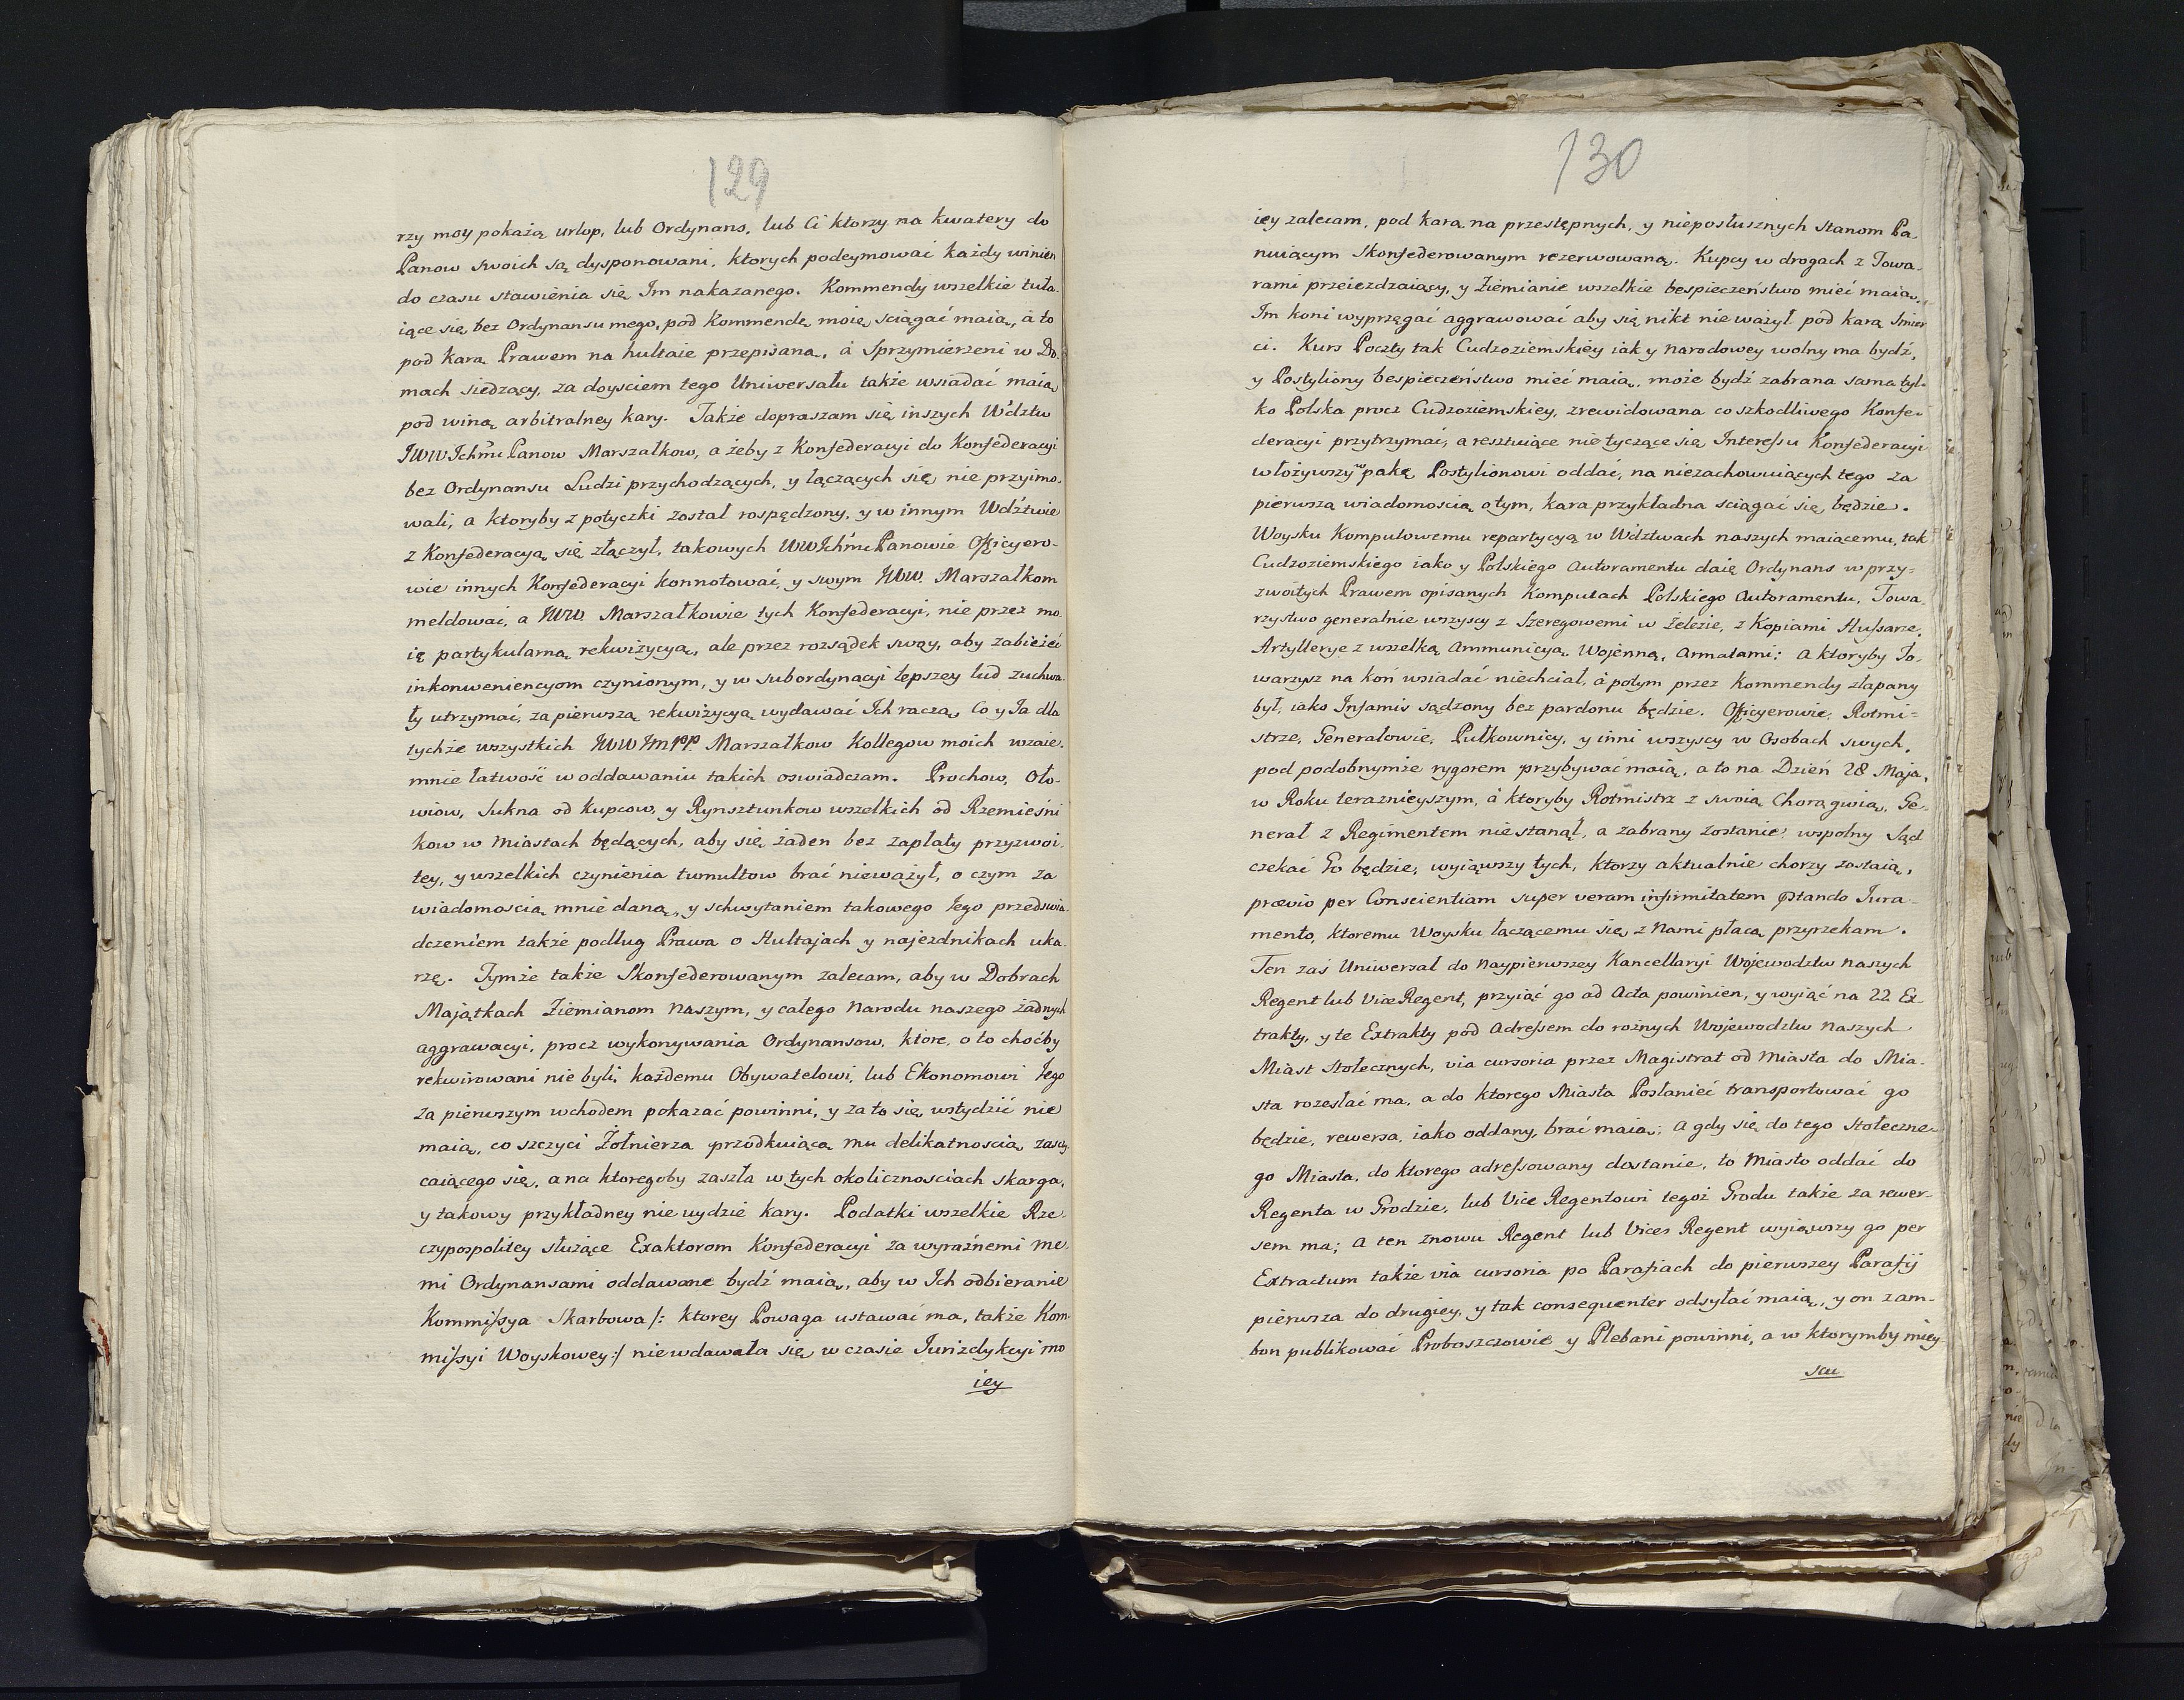 129
rzy moy pokażą urlop, lub Ordynans, lub Ci ktorzy na kwatery do
Panow swoich są dysponowani, ktorych podeymować każdy winien
do czasu stawienia się Im nakazanego. Kommendy wszelkie tuła-
iące się bez Ordynansu mego, pod Kommendę moię sciągać maią, á to
pod karą Prawem na hultaie przepisaną, á Sprzymierzeni w Do-
mach siedzący, za doysciem tego Uniwersału także wsiadać maią
pod winą arbitralney kary. Także dopraszam się inszych Wdztw
JWW Ichmć Panow Marszałkow, a żeby z Konfederacyi do Konfederacyi
bez Ordynansu Ludzi przychodzących, y łączących się nie przyimo-
wali, a ktoryby z potyczki został rospędzony, y w innym Wdztwie
z Konfederacyą się złączył, takowych WW Ichmć Panowie Officyero-
wie innych Konfederacyi konnotować, y swym JWW. Marszałkom
meldować, a JWW. Marszałkowie tych Konfederacyi, nie przez mo-
ię partykularną rekwizycyą, ale przez rozsądek swoy, aby zabieżeć
inkonweniencyom czynionym, y w subordynacyi lepszey lud zuchwa-
ły utrzymać, za pierwszą rekwizycyą wydawać Ich raczą, Co y Ja dla
tychże wszystkich JWW Jmpp Marszałkow Kollegow moich wzaie-
mnie łatwość w oddawaniu takich oswiadczam. Prochow, Oło-
wiow, Sukna od Kupcow, y Rynsztunkow wszelkich od Rzemieśni
kow w Miastach będących, aby się żaden bez zapłaty przyzwoi-
tey, y wszelkich czynienia tumultow brać nieważył, o czym za
wiadomoscią mnie daną, y schwytaniem takowego Jego przedswia-
dczeniem także podług Prawa o Hultajach y najezdnikach uka-
rzę. Tymże także Skonfederowanym zalecam, aby w Dobrach
Majątkach Ziemianom Naszym, y całego Narodu naszego żadnych
aggrawacyi, procz wykonywania Ordynansow, ktore, o to choćby
rekwirowani nie byli, każdemu Obywatelowi, lub Ekonomowi Jego
za pierwszym wchodem pokazać powinni, y za to się wstydzić nie
maią, co szczyci Żołnierza przodkuiącą mu delikatnoscią zaszczy-
caiącego się, a na ktoregoby zaszła w tych okolicznosciach skarga,
y takowy przykładney nie uydzie kary. Podatki wszelkie Rze-
czypospolitey służące Exaktorom Konfederacyi za wyraźnemi me-
mi Ordynansami oddawane bydź maią, aby w Ich odbieranie
Kommissya Skarbowa /: ktorey Powaga ustawać ma, także Kom-
missyi Woyskowey :/ niewdawała się w czasie Jurizdykcyi mo
iey
130
iey zalecam, pod karą na przestępnych, y nieposłusznych Stanom Pa-
nuiącym Skonfederowanym rezerwowaną. Kupcy w drogach z Towa-
rami przeiezdzaiący, y Ziemianie wszelkie bespieczeństwo mieć maią,
Im koni wyprzęgać aggrawować aby się nikt nie ważył pod karą Smier
ci. Kurs Poczty tak Cudzoziemskiey iak y Narodowey wolny ma bydź,
y Postyliony bespieczeństwo mieć maią, może bydź zabrana sama tyl-
ko Polska procz Cudzoziemskiey, zrewidowana co szkodliwego Konfe-
deracyi przytrzymać, a resztuiące nie tyczące się Interessu Konfederacyi
włożywszy w pakę Postylionowi oddać, na niezachowuiących tego za
pierwszą wiadomoscią o tym, kara przykładna sciągać się będzie.
Woysku Komputowemu repartycyą w Wdztwach naszych maiącemu, tak
Cudzoziemskiego iako y Polskiego autoramentu daię Ordynans w przy-
zwoitych Prawem opisanych Komputach Polskiego Autoramentu, Towa-
rzystwo generalnie wszyscy z Szeregowemi w żelezie, z Kopiami Hussarze,
Artylleryę z wszelką Ammunicyą Wojenną, Armatami; A ktoryby To-
warzysz na koń wsiadać niechciał, á potym przez Kommendy złapany
był, iako Infamis sądzony bez pardonu będzie. Officyerowie, Rotmi-
strze, Generałowie, Pułkownicy, y inni wszyscy w Osobach swych,
pod podobnymże rygorem przybywać maią, a to na Dzień 28 Maja,
w Roku teraznieyszym, á ktoryby Rotmistrz z swoią Chorągwią, Ge-
nerał z Regimentem niestanął, a zabrany zostanie, wspolny Sąd
czekać Go będzie, wyiąwszy tych, ktorzy aktualnie chorzy zostaią,
prævio per Conscientiam super veram infirmitatem præstando Jura-
mento, ktoremu Woysku łączącemu się z Nami płacą przyrzekam.
Ten zaś Uniwersał do Naypierwszey Kancellaryi Wojewodztw Naszych
Regent lub Vice Regent, przyiąć go ad Acta powinien, y wyiąć na 22 Ex-
trakty, y te Extrakty pod Adressem do rożnych Wojewodztw Naszych
Miast Stołecznych, via cursoria przez Magistrat od Miasta do Mia-
sta rozesłać ma, a do ktorego Miasta Posłaniec transportować go
będzie, rewersa, iako oddany, brać maią; A gdy się do tego Stołeczne-
go Miasta, do ktorego adressowany dostanie, to Miasto oddać do
Regenta w Grodzie, lub Vice Regentowi tegoż Grodu także za rewer-
sem ma; A ten znowu Regent lub Vices Regent wyiąwszy go per
Extractum także via cursoria po Parafiach do pierwszey Parafij
pierwsza do drugiey, y tak consequenter odsyłać maią, y on z am-
bon publikować Proboszczowie y Plebani powinni, a w ktorymby miey
scu